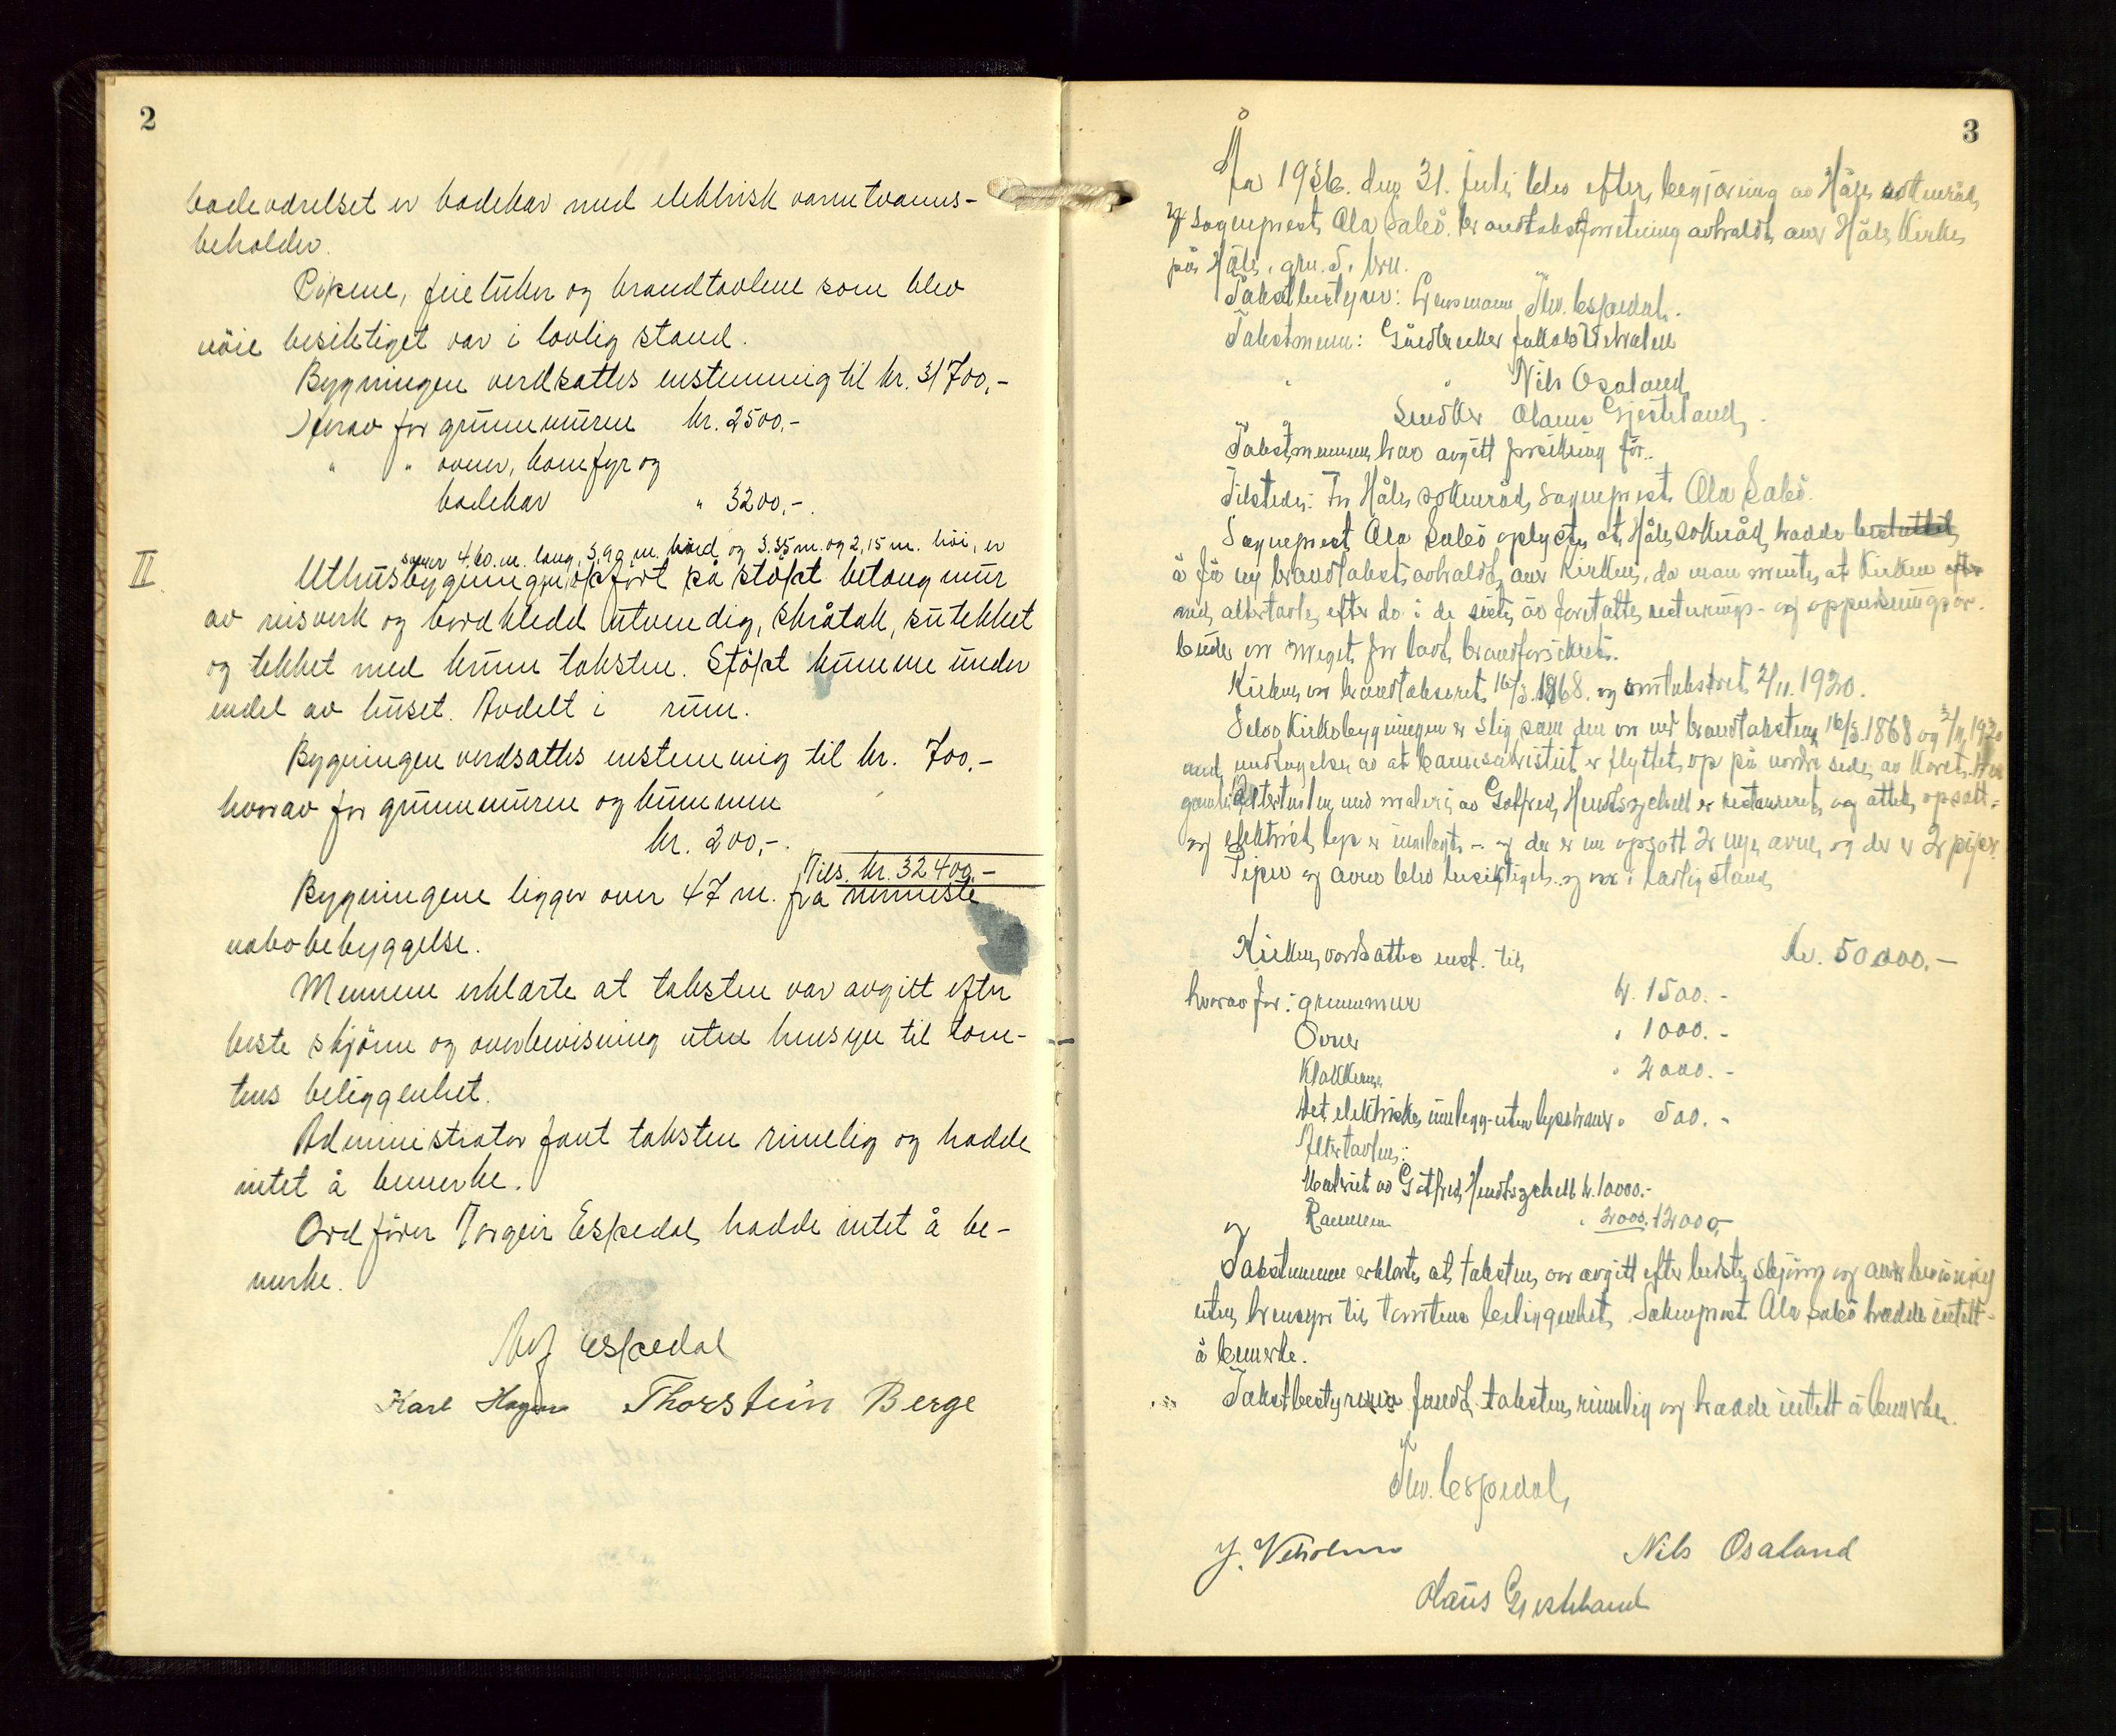 2
badeværelset er badekar med elektrisk varmtvanns-
beholder.
Pipene, feieluker og brandtavlene som blev
nöie besiktiget var i lovlig stand.
Bygningen verdsattes enstemmig til kr. 31700,-
Herav for grunnmuren kr. 2500.-
" " ovner, komfyr og
badekar " 3200,-.
som er 4.60 m. lang, 3,90 m. breid og 3.35 m. og 2,15 m. höi, er
II. Uthusbygningen opfört på stöpt betong mur
av reisverk og bordkledd utvendig, skråtak, sutekket
og tekket med krum taksten. Stöpt kumme under
endel av huset. Avdelt i rum.
Bygningen verdsattes enstemmig til kr. 700.-
hvorav for grunnmuren og kummen
kr. 200,-.
Tils. kr. 32400.-
Bygningene ligger over 47 m. fra nærmeste
nabobebyggelse.
Mennene erklærte at taksten var avgitt efter
beste skjönn og overbevisning uten hensyn til tom-
tens beliggenhet.
Administrator fant taksten rimelig og hadde
intet å bemerke.
Ordförer Torgeir Espedal hadde intet å be-
merke.
Espedal
Karl Hagen Thorstein Berge
3
År 1936. den 31. juli blev efter begjæring av Håle sokneråd
og sogneprest Ola Saleö brandtakstforretning avholdt over Håle Kirke
på Håle, gnr. 5, bnr.
Takstbestyrer: Lensmann Thv. Espedal.
Takstmenn: Gårdbruker Vetrholm
" " Nils Osaland
Snedker Olaus Gjesteland.
Takstmennene har avgitt forsikring för.
Tilstede: For Håle sokneråd, sogneprest Ola Saleö.
Sogneprest Ola Saleö oplyste at Håle sokneråd hadde besluttet
å få ny brandtakst avholdt over Kirken, da man mente at Kirken
med altertavle, efter de i de siste år foretatte restaurings- og oppussningsar-
beider var meget for lavt brandforsikret.
Kirken var brandtaksert 16/3. 1868. og omtaksert 2/11. 1920.
Selve Kirkebygningen er slik som den var ved brandtaksten 16/3. 1868 og 2/11 1920
med undtagelse av at er flyttet op på nordre side av Koret. Den
gamle Altertavlen med maleri av Gotfred Hendtzschell er restaurert og atter opsatt.
og elektrisk lys er innlagt - og der er nu opsatt 2 nye ovner og der er 2 piper.
Piper og ovner blev besiktiget og var i lovlig stand
Kirken verdsattes enst. til kr. 50000.-
hvorav for: grunnmur kr. 1500.-
Ovner " 1000.-
Klokkene " 2000.-
Det elektriske innlegg-uten lyskroner " 500.-
Altertavlen:
Maleriet av Gotfred Hendtzschell kr. 10000.-
og Rammen " 2000. 12000,-
Takstmennene erklærte at taksten var avgitt efter beste skjönn og overbevisning
uten hensyn til tomtens beliggenhet. Sokneprest Ola Saleö hadde intett
å bemerke.
Takstbestyreren fandt taksten rimelig og hadde intett å bemerke.
Thv. Espedal,
J. Vetrholm Nils Osaland
Olaus Gjesteland